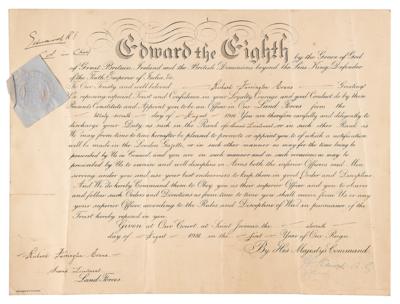 Edward R.I.
Edward the Eighth
by the Grace of God
of Great Britain, Ireland and the British Dominions beyond the Seas King, Defender
of the Faith, Emperor of India, &c.
To Our trusty and well beloved Robert Greeting
We reposing especial Trust and Confidence in your Loyalty, Courage and good Conduct do by these
Presents Constitute and Appoint you to be an Officer in Our Land Forces from the
day of 1936. You are therefore carefully and diligently to
discharge your Duty as such in the Rank of Second Lieutenant or in such other Rank as
We may from time to time hereafter be pleased to promote or appoint you to, of which a notification
will be made in the London Gazette, or in such other manner as may for the time being be
prescribed by Us in Council, and you are in such manner and on such occasions as may be
prescribed by Us to exercise and well discipline in Arms both the inferior Officers and Men
serving under you and use your best endeavours to keep them in good Order and Discipline.
And We do hereby Command them to Obey you as their superior Officer and you to observe
and follow such Orders and Directions as from time to time you shall receive from Us, or any
your superior Officer, according to the Rules and Discipline of War, in pursuance of the
Trust hereby reposed in you.
Given at Our Court, at Saint James's the
day of 1936 in the first Year of Our Reign
By His Majesty's Command
Robert
Second Lieutenant
Land Forces